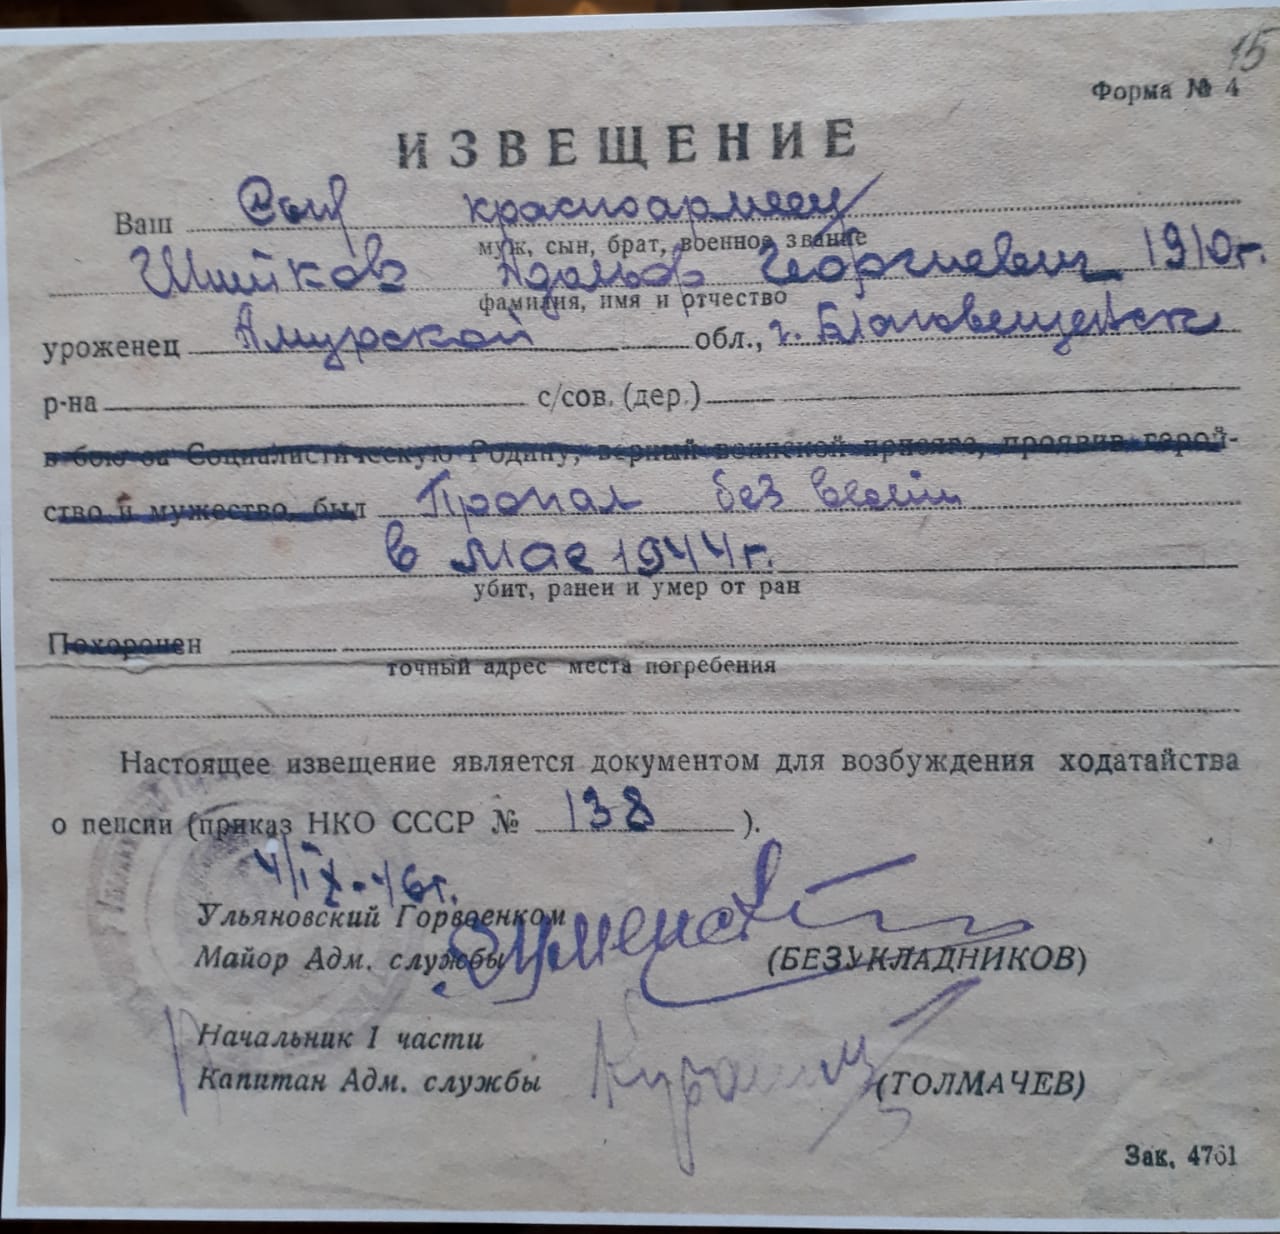 15
Форма № 4
ИЗВЕЩЕНИЕ
Ваш Сын красноармеец
муж, сын, брат, военное звание
Шишков Адольф Георгиевич 1910 г.
фамилия, имя и отчество
уроженец Амурской обл., г. Благовещенск
р-на с/сов. (дер.)
в бою за Социалистическую Родину, верный воинской присяге, проявив герой-
ство и мужество, был Пропал без вести
в мае 1944 г.
убит, ранен и умер от ран
Похоронен
точный адрес места погребения
Настоящее извещение является документом для возбуждения ходатайства
о пенсии (приказ НКО СССР № 138 ).
4/IX-46 г.
Ульяновский Горвоенком
Майор Адм. службы (БЕЗУКЛАДНИКОВ)
Начальник 1 части
Капитан Адм. службы (ТОЛМАЧЕВ)
Зак. 4761